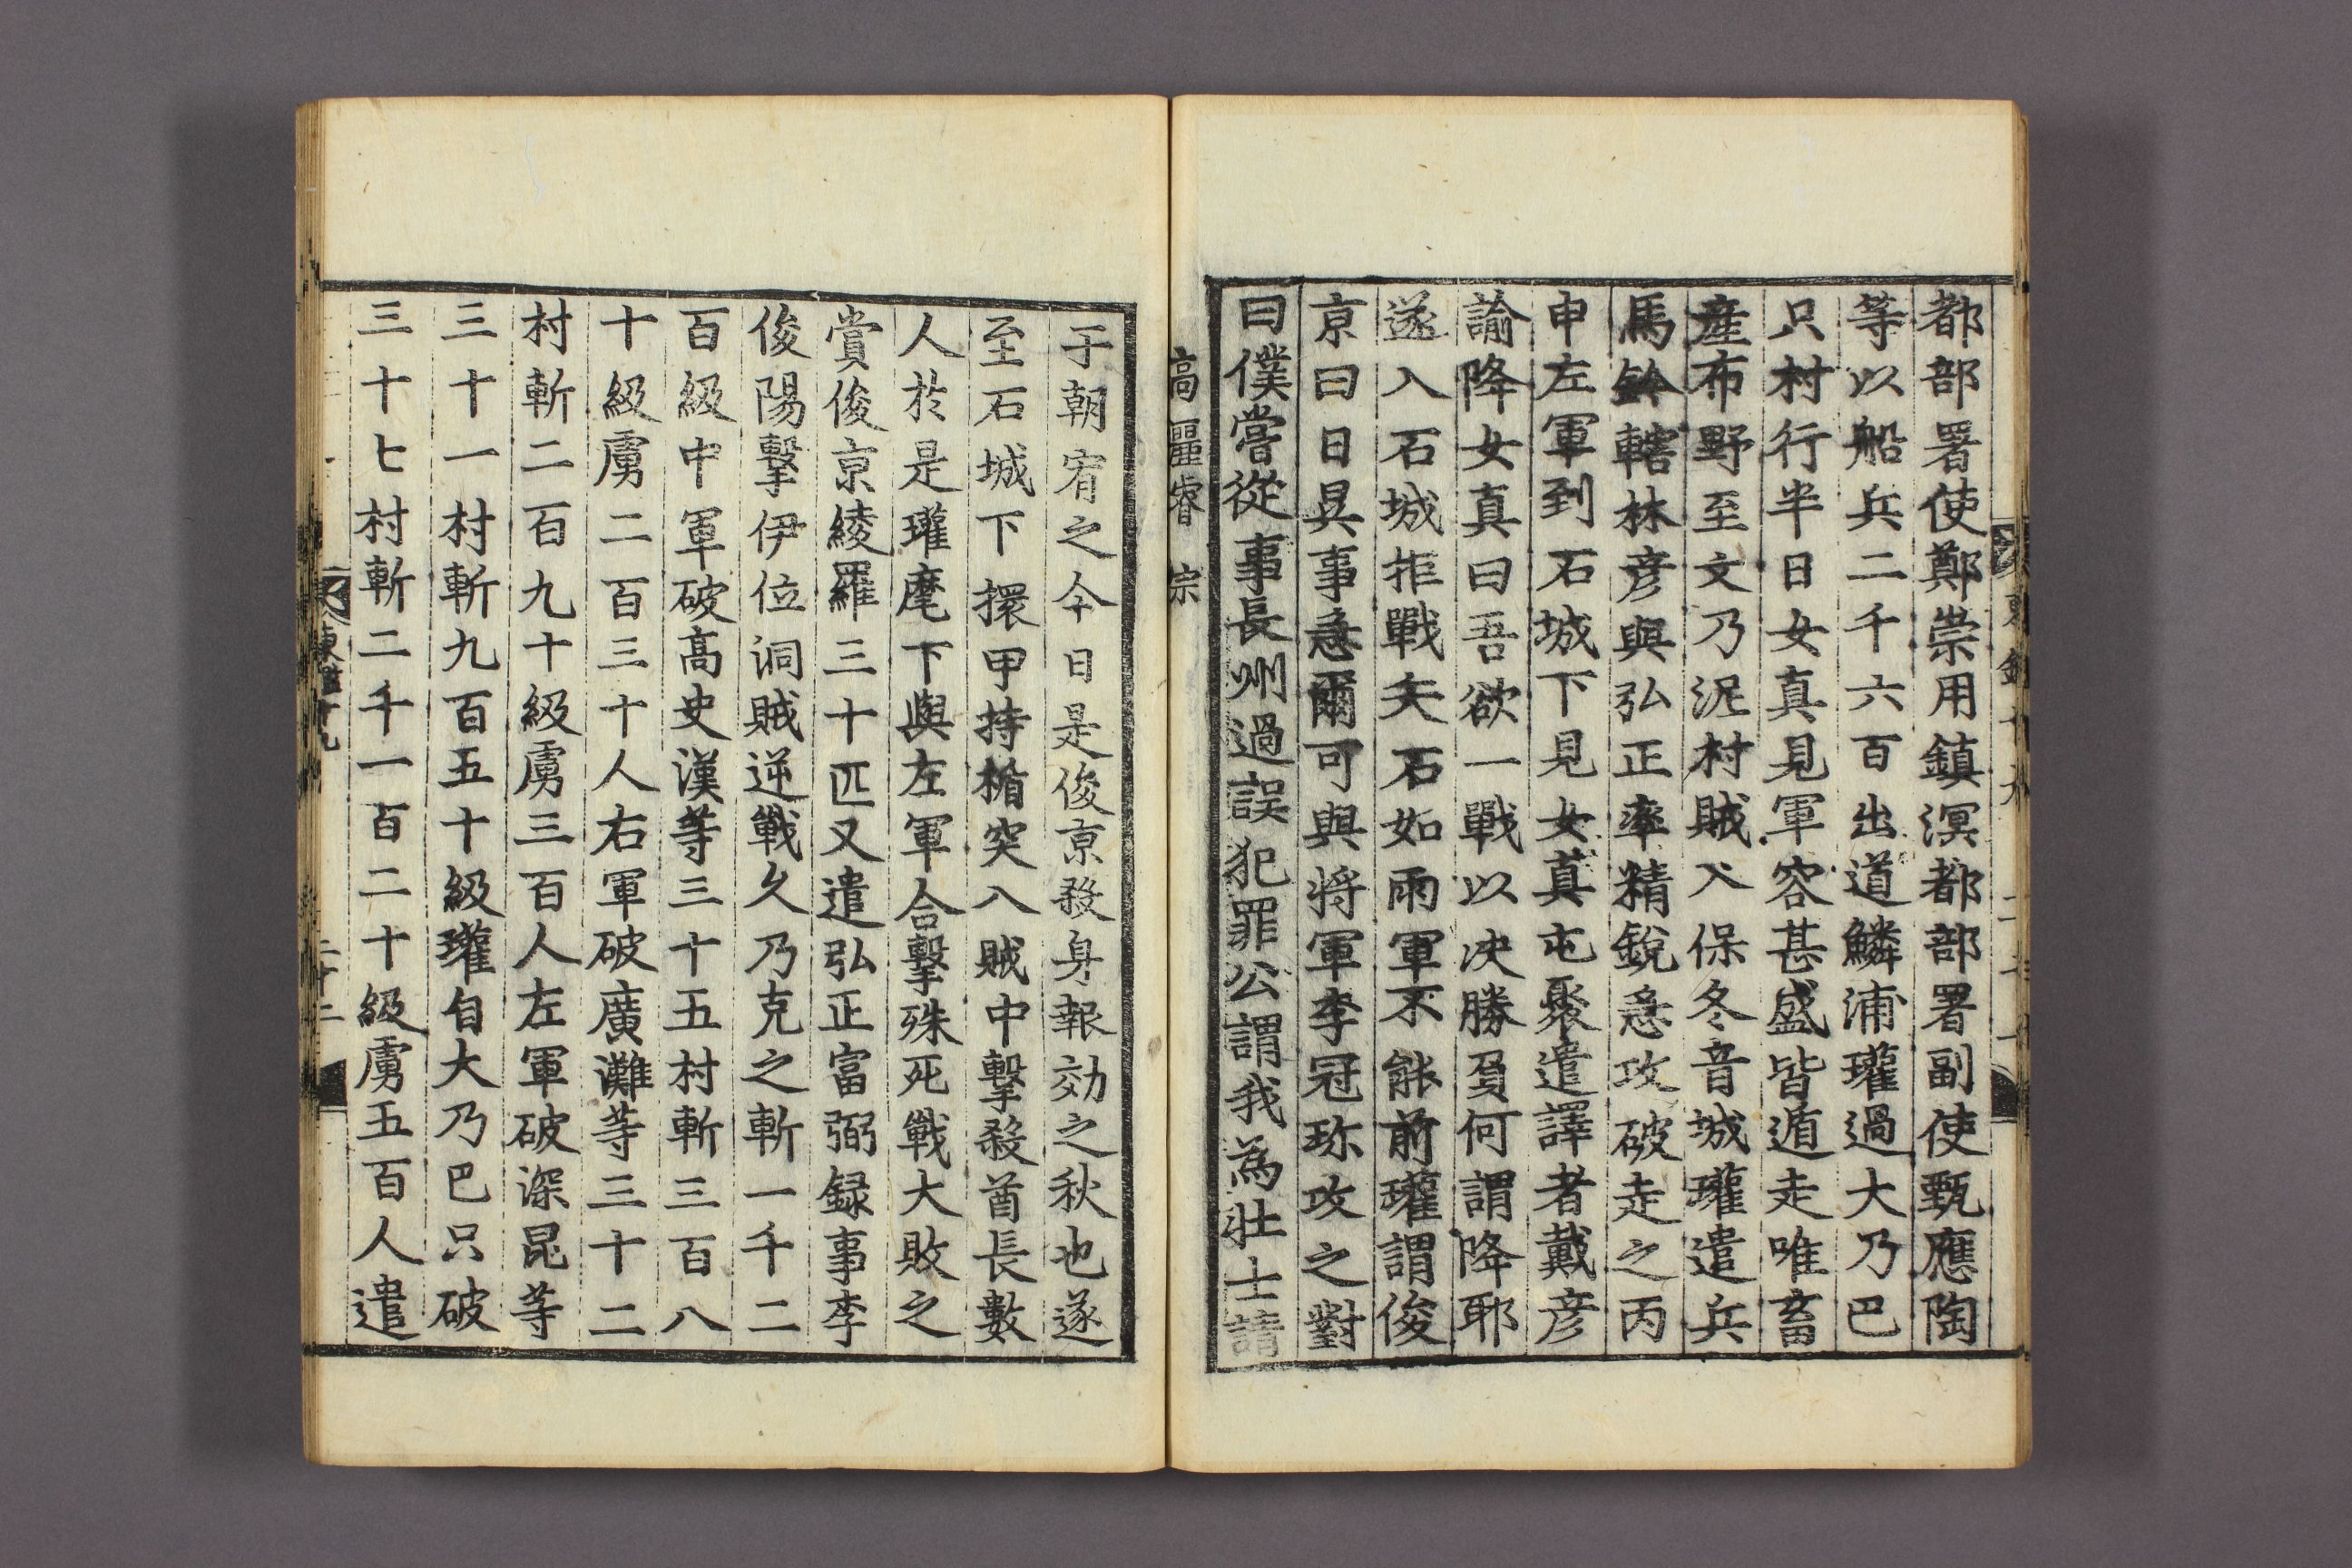 都部署使鄭崇用鎮溟都部署副使甄應陶
等以船兵二千六百出道鱗浦瓘過大乃巴
只村行半日女真見軍容甚盛皆遁走唯畜
產布野至文乃泥村賊入保冬音城瓘遣兵
馬鈐轄林彦與弘正率精銳急攻破走之丙
申左軍到石城下見女真屯聚遣譯者戴彦
諭降女真曰吾欲一戰以决勝負何謂降耶
遂入石城拒戰矢石如雨軍不能前瓘謂俊
京曰日昃事急爾可與將軍李冠珎攻之對
曰僕嘗從事長州過誤犯罪公謂我為壯士請
高麗睿宗
于朝宥之今日是俊京殺身報効之秋也遂
至石城下擐甲持楯突入賊中擊殺酋長數
人於是瓘麾下與左軍合擊殊死戰大敗之
賞俊京綾羅三十匹又遣弘正富弼録事李
俊陽擊伊位洞賊逆戰久乃克之斬一千二
百級中軍破高史漢等三十五村斬三百八
十級虜二百三十人右軍破廣灘等三十二
村斬二百九十級虜三百人左軍破深昆等
三十一村斬九百五十級瓘自大乃巴只破
三十七村斬二千一百二十級虜五百人遣
東鑑十九
二十二